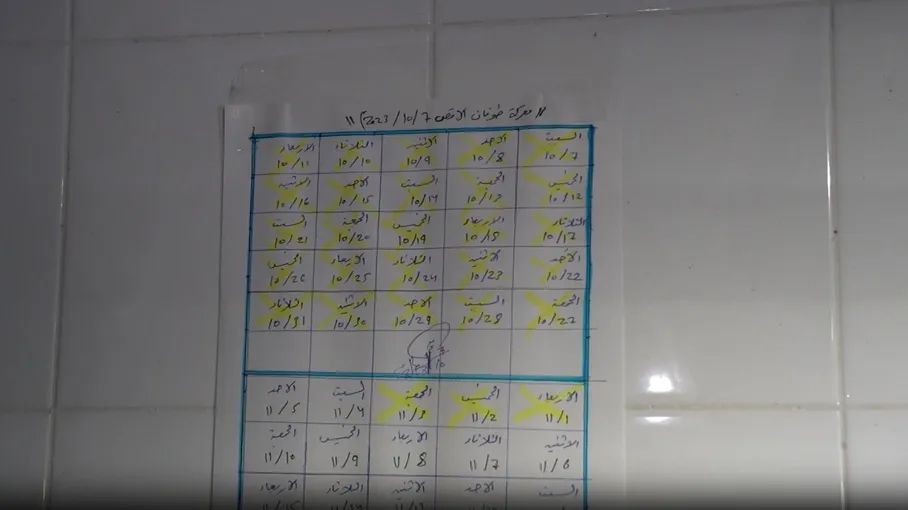 "معركة طوفان الاقصى 2023/10/7"
السبت الاحد الاثنين الثلاثاء الاربعاء
10/7 10/8 10/9 10/10 10/11
الخميس الجمعة السبت الاحد الاثنين
10/12 10/13 10/14 10/15 10/16
الثلاثاء الاربعاء الخميس الجمعة السبت
10/17 10/18 10/19 10/20 10/21
الاحد الاثنين الثلاثاء الاربعاء الخميس
10/22 10/23 10/24 10/25 10/26
الجمعة السبت الاحد الاثنين الثلاثاء
10/27 10/28 10/29 10/30 10/31
الاربعاء الخميس الجمعة السبت الاحد
11/1 11/2 11/3 11/4 11/5
الاثنين الثلاثاء الاربعاء الخميس الجمعة
11/6 11/7 11/8 11/9 11/10
السبت الاحد الاثنين الثلاثاء الاربعاء